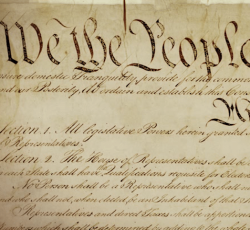 We the People
insure domestic Tranquility, provide for the common
and our Posterity, do ordain and establish this Cons
Section. 1. All legislative Powers herein granted
of Representatives.
Section. 2. The House of Representatives shall be
each State shall have Qualifications requisite for Electors
No Person shall be a Representative who shall not
and who shall not, when elected, be an Inhabitant of that
Representatives and direct Taxes shall be apportion